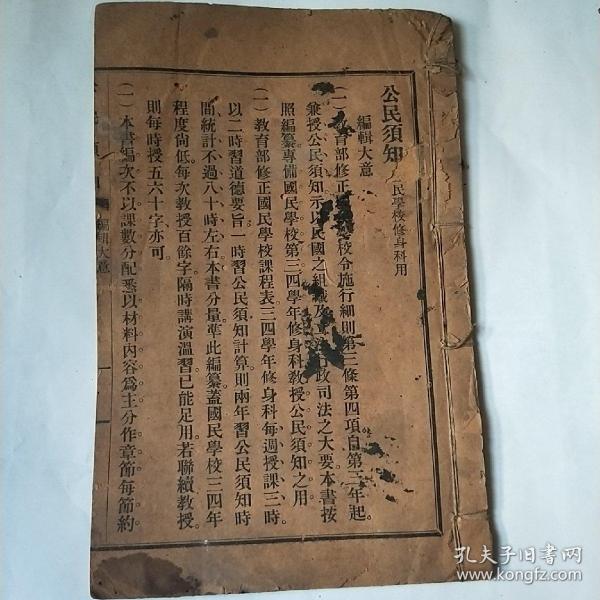 公民須知 民學校修身科用
編輯大意
(一)教育部修正 校令施行細則第三條第四項自第三年起。
兼授公民須知示以民國之組織及 政司法之大要本書按
照編纂專備國民學校第三四學年修身科教授公民須知之用
(一)教育部修正國民學校課程表三四學年修身科每週授課三時
以二時習道德要旨一時習公民須知計算則兩年習公民須知時
間統計不過八十時左右本書分量準此編纂蓋國民學校三四年
程度尙低每次教授百餘字隔時講演溫習已能足用若聯續教授。
則每時授五六十字亦可。
(一)本書編次不以課數分配悉以材料內容爲主分作章節每節約
編輯大意
孔夫子旧书网
www.kongfz.com